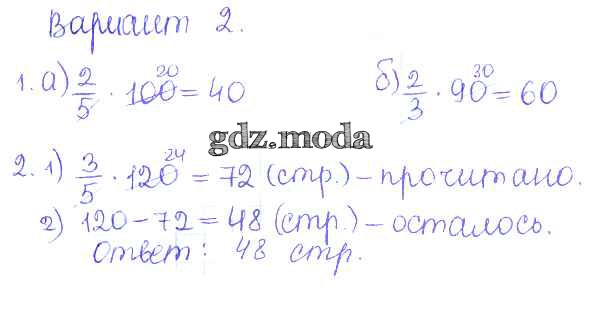 Вариант 2.
1. а) 2/5 · 100 20 = 40 б) 2/3 · 90 30 = 60
gdz.moda
2. 1) 3/5 · 120 24 = 72 (стр.) – прочитано.
2) 120 – 72 = 48 (стр.) – осталось.
Ответ: 48 стр.